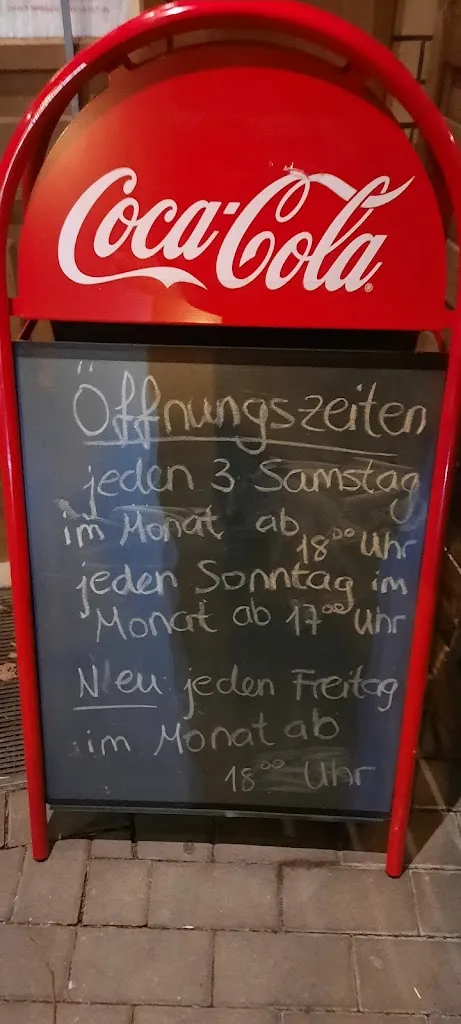 Coca-Cola
Öffnungszeiten
jeden 3 Samstag
im Monat ab 18⁰⁰ Uhr
jeden Sonntag im
Monat ab 17⁰⁰ Uhr
Neu jeden Freitag
im Monat ab
18⁰⁰ Uhr